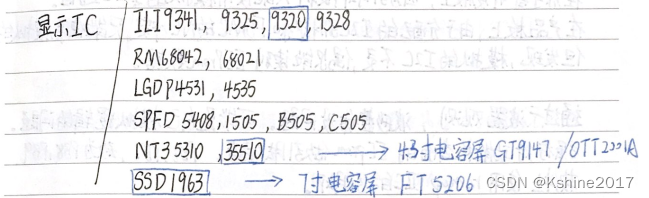 显示IC
ILI9341, 9325, 9320, 9328
RM68042, 68021
LGDP4531, 4535
SPFD 5408, 1505, B505, C505
NT35310, 35510 → 4.3寸电容屏 GT9147 / OTT2001A
SSD1963 → 7寸电容屏 FT5206
CSDN @Kshine2017